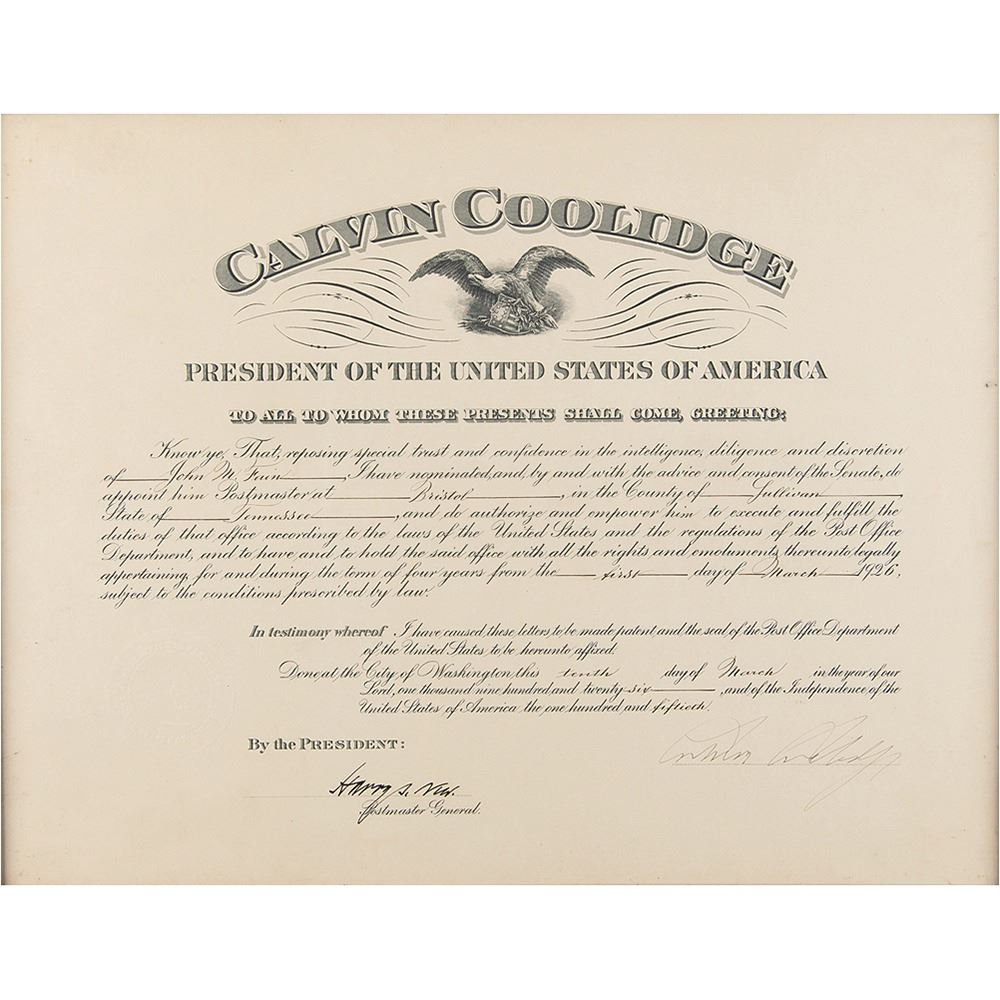 CALVIN COOLIDGE
PRESIDENT OF THE UNITED STATES OF AMERICA
TO ALL TO WHOM THESE PRESENTS SHALL COME, GREETING:
Know ye, That, reposing special trust and confidence in the intelligence, diligence and discretion
of John M. Fain, I have nominated, and, by and with the advice and consent of the Senate, do
appoint him Postmaster at Bristol, in the County of Sullivan,
State of Tennessee, and do authorize and empower him to execute and fulfill the
duties of that office according to the laws of the United States and the regulations of the Post Office
Department, and to have and to hold the said office with all the rights and emoluments thereunto legally
appertaining, for and during the term of four years from the first day of March 1926,
subject to the conditions prescribed by law.
In testimony whereof I have caused these letters to be made patent and the seal of the Post Office Department
of the United States to be hereunto affixed.
Done at the City of Washington this tenth day of March in the year of our
Lord, one thousand nine hundred and twenty-six, and of the Independence of the
United States of America the one hundred and fiftieth.
By the PRESIDENT:
Calvin Coolidge
Harry S. New.
Postmaster General.